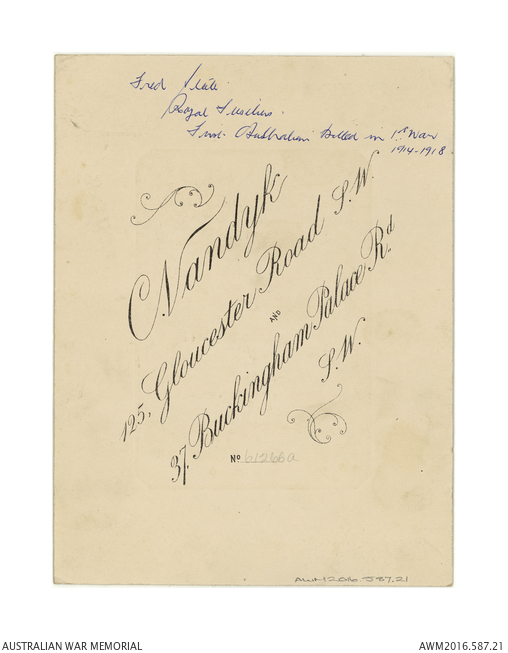 Fred
Royal Fusiliers.
First Australian killed in 1st War
1914-1918
Nandyk
125, Gloucester Road S.W.
AND
37, Buckingham Palace Rd
S.W.
No 61266a
AWM2016.587.21
AUSTRALIAN WAR MEMORIAL
AWM2016.587.21